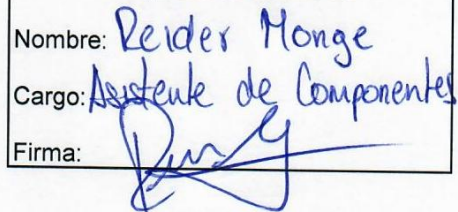 Nombre: Reider Monge
Cargo: Asistente de Componentes
Firma: